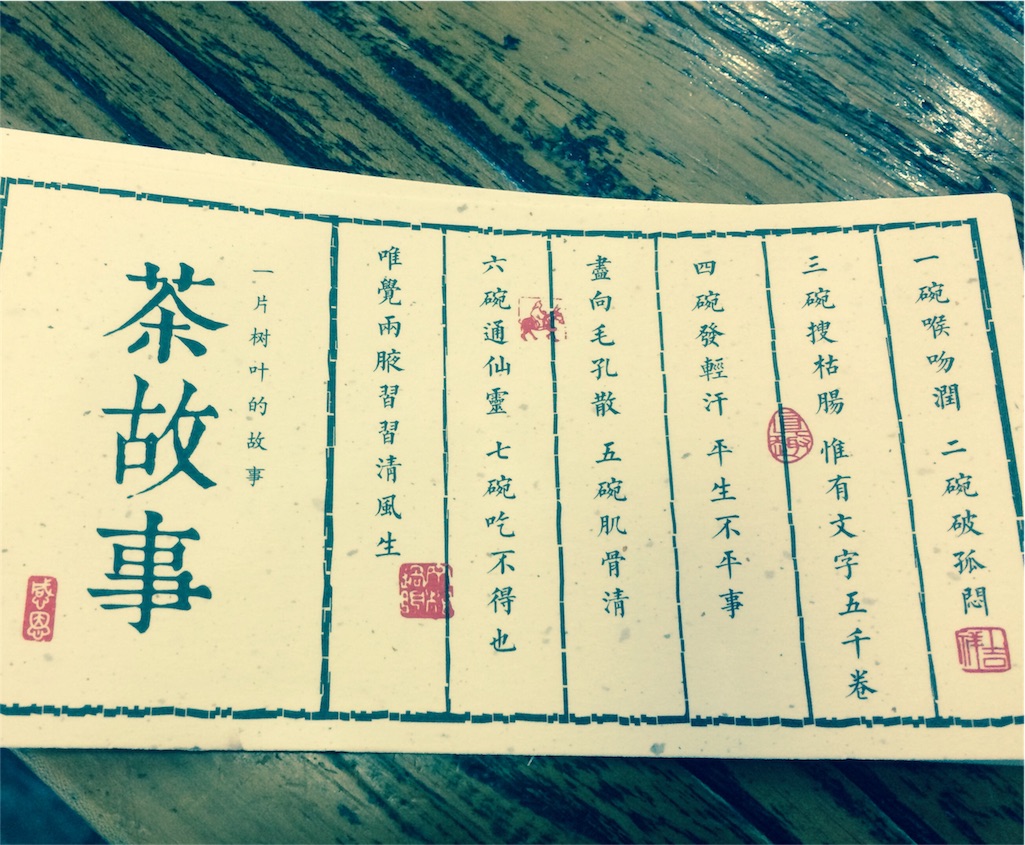 一碗喉吻潤 二碗破孤悶
三碗搜枯腸 惟有文字五千卷
四碗發輕汗 平生不平事
盡向毛孔散 五碗肌骨清
六碗通仙靈 七碗吃不得也
唯覺兩腋習習清風生
一片树叶的故事
茶故事
吉祥
感恩